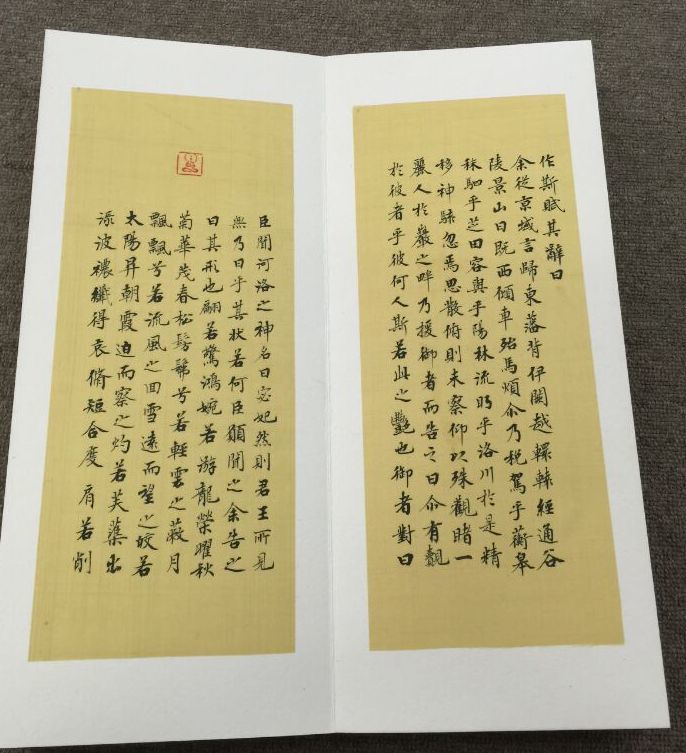 作斯賦其辭曰
余從京域言歸東藩背伊闕越轘轅經通谷
陵景山日既西傾車殆馬煩尒乃税駕乎蘅皋
秣駟乎芝田容與乎陽林流眄乎洛川於是精
移神駭忽焉思散俯則未察仰以殊觀睹一
麗人於巖之畔乃援御者而告之曰尒有覿
於彼者乎彼何人斯若此之豔也御者對曰
臣聞河洛之神名曰宓妃然則君王所見
無乃曰乎其狀若何臣願聞之余告之
曰其形也翩若驚鴻婉若游龍榮曜秋
菊華茂春松髣髴兮若輕雲之蔽月
飄飄兮若流風之回雪遠而望之皎若
太陽昇朝霞迫而察之灼若芙蕖出
淥波襛纖得衷脩短合度肩若削